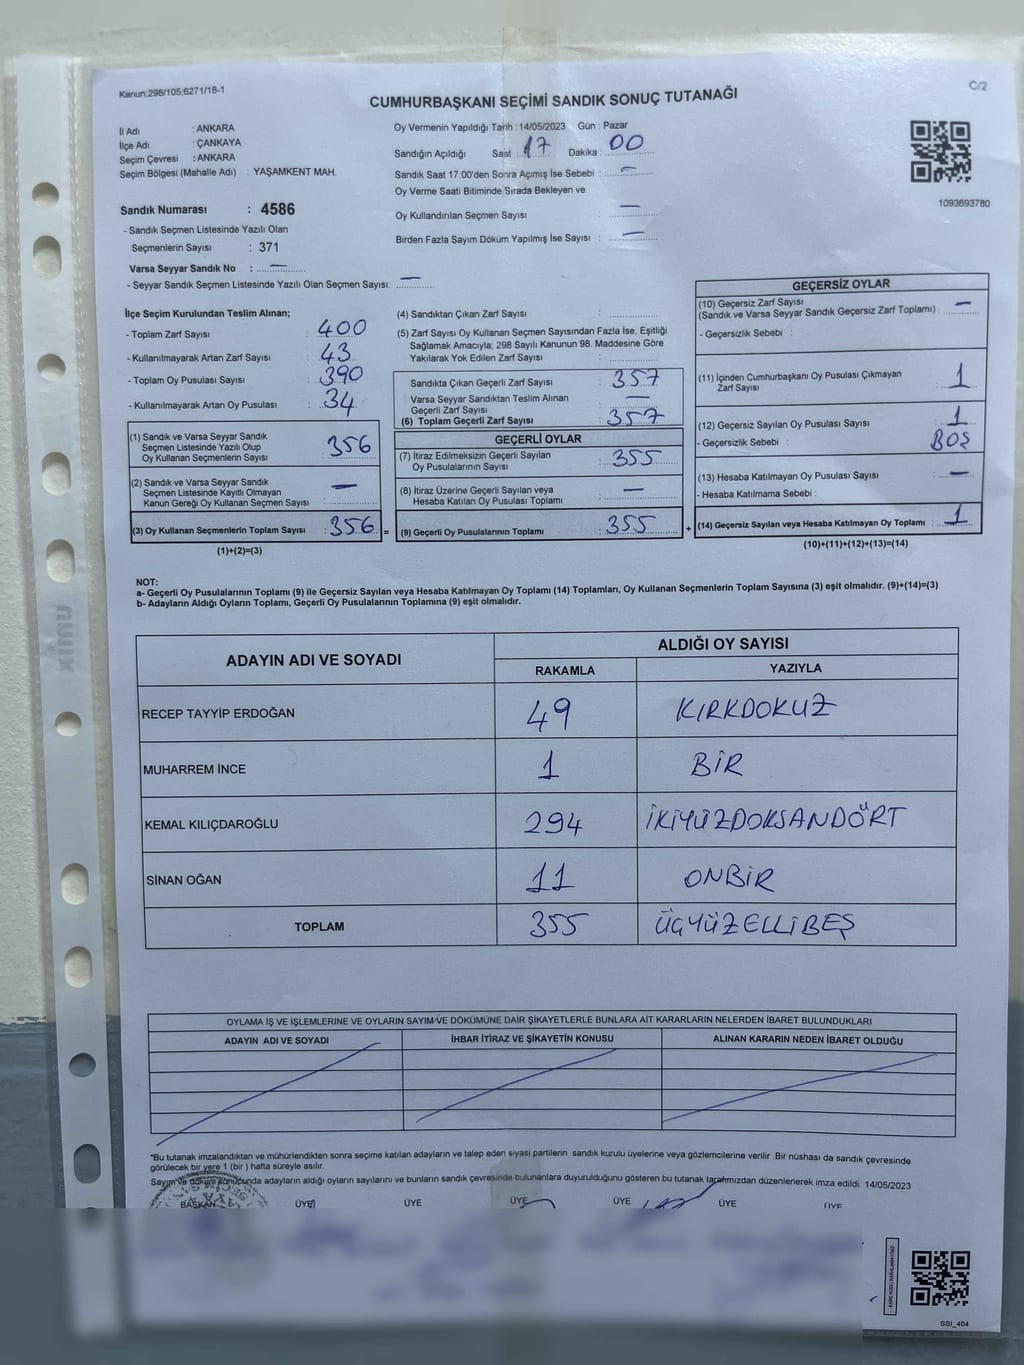 Kanun:298/105;6271/18-1
C/2
CUMHURBAŞKANI SEÇİMİ SANDIK SONUÇ TUTANAĞI
İl Adı : ANKARA
İlçe Adı : ÇANKAYA
Seçim Çevresi : ANKARA
Seçim Bölgesi (Mahalle Adı) : YAŞAMKENT MAH.
Sandık Numarası : 4586
- Sandık Seçmen Listesinde Yazılı Olan
Seçmenlerin Sayısı : 371
Varsa Seyyar Sandık No : —
- Seyyar Sandık Seçmen Listesinde Yazılı Olan Seçmen Sayısı: —
Oy Vermenin Yapıldığı Tarih : 14/05/2023 Gün : Pazar
Sandığın Açıldığı Saat : 17 Dakika : 00
Sandık Saat 17:00'den Sonra Açımış İse Sebebi : —
Oy Verme Saati Bitiminde Sırada Bekleyen ve
Oy Kullandırılan Seçmen Sayısı : —
Birden Fazla Sayım Döküm Yapılmış İse Sayısı : —
1093693780
İlçe Seçim Kurulundan Teslim Alınan;
- Toplam Zarf Sayısı : 400
- Kullanılmayarak Artan Zarf Sayısı : 43
- Toplam Oy Pusulası Sayısı : 390
- Kullanılmayarak Artan Oy Pusulası : 34
(1) Sandık ve Varsa Seyyar Sandık
Seçmen Listesinde Yazılı Olup
Oy Kullanan Seçmenlerin Sayısı : 356
(2) Sandık ve Varsa Seyyar Sandık
Seçmen Listesinde Kayıtlı Olmayan
Kanun Gereği Oy Kullanan Seçmen Sayısı : —
(3) Oy Kullanan Seçmenlerin Toplam Sayısı : 356 =
(1)+(2)=(3)
(4) Sandıktan Çıkan Zarf Sayısı :
(5) Zarf Sayısı Oy Kullanan Seçmen Sayısından Fazla İse, Eşitliği
Sağlamak Amacıyla; 298 Sayılı Kanunun 98. Maddesine Göre
Yakılarak Yok Edilen Zarf Sayısı :
Sandıkta Çıkan Geçerli Zarf Sayısı : 357
Varsa Seyyar Sandıktan Teslim Alınan
Geçerli Zarf Sayısı : —
(6) Toplam Geçerli Zarf Sayısı : 357
GEÇERLİ OYLAR
(7) İtiraz Edilmeksizin Geçerli Sayılan
Oy Pusulalarının Sayısı : 355
(8) İtiraz Üzerine Geçerli Sayılan veya
Hesaba Katılan Oy Pusulası Toplamı : —
(9) Geçerli Oy Pusulalarının Toplamı : 355 +
GEÇERSİZ OYLAR
(10) Geçersiz Zarf Sayısı
(Sandık ve Varsa Seyyar Sandık Geçersiz Zarf Toplamı) : —
- Geçersizlik Sebebi :
(11) İçinden Cumhurbaşkanı Oy Pusulası Çıkmayan
Zarf Sayısı : 1
(12) Geçersiz Sayılan Oy Pusulası Sayısı : 1
- Geçersizlik Sebebi : BOŞ
(13) Hesaba Katılmayan Oy Pusulası Sayısı : —
- Hesaba Katılmama Sebebi :
(14) Geçersiz Sayılan veya Hesaba Katılmayan Oy Toplamı : 1
(10)+(11)+(12)+(13)=(14)
NOT:
a- Geçerli Oy Pusulalarının Toplamı (9) ile Geçersiz Sayılan veya Hesaba Katılmayan Oy Toplamı (14) Toplamları, Oy Kullanan Seçmenlerin Toplam Sayısına (3) eşit olmalıdır. (9)+(14)=(3)
b- Adayların Aldığı Oyların Toplamı, Geçerli Oy Pusulalarının Toplamına (9) eşit olmalıdır.
ADAYIN ADI VE SOYADI
ALDIĞI OY SAYISI
RAKAMLA YAZIYLA
RECEP TAYYİP ERDOĞAN 49 KIRKDOKUZ
MUHARREM İNCE 1 BİR
KEMAL KILIÇDAROĞLU 294 İKİYÜZDOKSANDÖRT
SİNAN OĞAN 11 ONBİR
TOPLAM 355 ÜÇYÜZELLİBEŞ
OYLAMA İŞ VE İŞLEMLERİNE VE OYLARIN SAYIM VE DÖKÜMÜNE DAİR ŞİKAYETLERLE BUNLARA AİT KARARLARIN NELERDEN İBARET BULUNDUKLARI
ADAYIN ADI VE SOYADI İHBAR İTİRAZ VE ŞİKAYETİN KONUSU ALINAN KARARIN NEDEN İBARET OLDUĞU
"Bu tutanak imzalandıktan ve mühürlendikten sonra seçime katılan adayların ve talep eden siyasi partilerin sandık kurulu üyelerine veya gözlemcilerine verilir .Bir nüshası da sandık çevresinde
görülecek bir yere 1 (bir ) hafta süreyle asılır.
Sayım ve döküm konusunda adayların aldığı oyların sayılarını ve bunların sandık çevresinde bulunanlara duyurulduğunu gösteren bu tutanak tarafımızdan düzenlenerek imza edildi. 14/05/2023
BAŞKAN ÜYE ÜYE ÜYE ÜYE ÜYE ÜYE
SSI_404